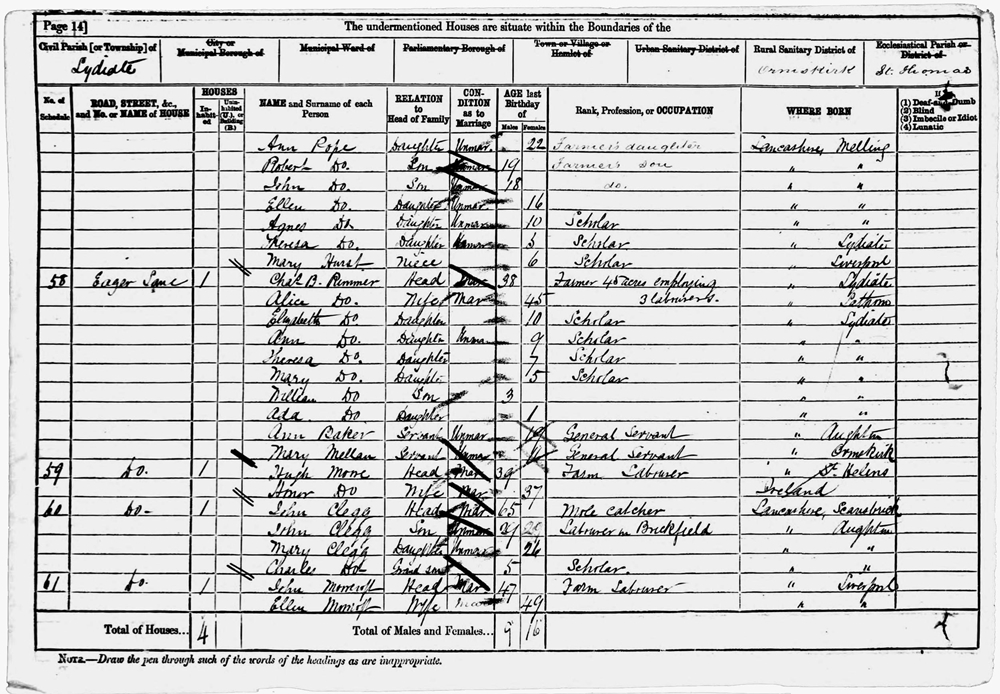 Page 14] The undermentioned Houses are situate within the Boundaries of the
Civil Parish [or Township] of City or Municipal Borough of Municipal Ward of Parliamentary Borough of Town or Village or Hamlet of Urban Sanitary District of Rural Sanitary District of Ecclesiastical Parish or District of
Lydiate Ormskirk St. Thomas
No. of Schedule ROAD, STREET, &c., and No. or NAME of HOUSE HOUSES Inhabited Uninhabited (U.), or Building (B.) NAME and Surname of each Person RELATION to Head of Family CONDITION as to Marriage AGE last Birthday of Males Females Rank, Profession, or OCCUPATION WHERE BORN If (1) Deaf-and-Dumb (2) Blind (3) Imbecile or Idiot (4) Lunatic
Ann Pope Daughter Unmar. 22 Farmer's daughter Lancashire, Melling
Robert Do. Son Unmar 19 Farmer's son " "
John Do. Son Unmar 18 do. " "
Ellen Do. Daughter Unmar. 16 " "
Agnes Do Daughter Unmar 10 Scholar " "
Theresa Do. Daughter Unmar 5 Scholar " Lydiate
Mary Hurst Niece 6 Scholar " Liverpool
58 Eager Lane 1 Chas B. Rimmer Head Mar 38 Farmer 45 acres employing " Lydiate
Alice Do. Wife Mar 45 3 labourers. "
Elizabeth Do Daughter 10 Scholar " Lydiate
Ann Do. Daughter Unmar 9 Scholar " "
Theresa Do. Daughter 7 Scholar " "
Mary Do. Daughter 5 Scholar " "
William Do Son 3 " "
Ada Do Daughter 1 " "
Ann Baker Servant Unmar 19 General Servant " Aughton
Mary Mellan Servant Unmar General Servant " Ormskirk
59 Do. 1 Hugh Moore Head Mar 39 Farm Labourer " St. Helens
Honor Do Wife Mar 37 Ireland
60 Do- 1 John Clegg Head Mar 65 Mole Catcher Lancashire, Scarisbrick
John Clegg Son Unmar 29 Labourer in Brickfield " Aughton
Mary Clegg Daughter Unmar 26 " "
Charles Do Grandson 5 Scholar. " "
61 Do. 1 John Head Mar 47 Farm Labourer " Liverpool
Ellen Wife Mar 49 " "
Total of Houses... 4 Total of Males and Females... 9 16
NOTE.—Draw the pen through such of the words of the headings as are inappropriate.